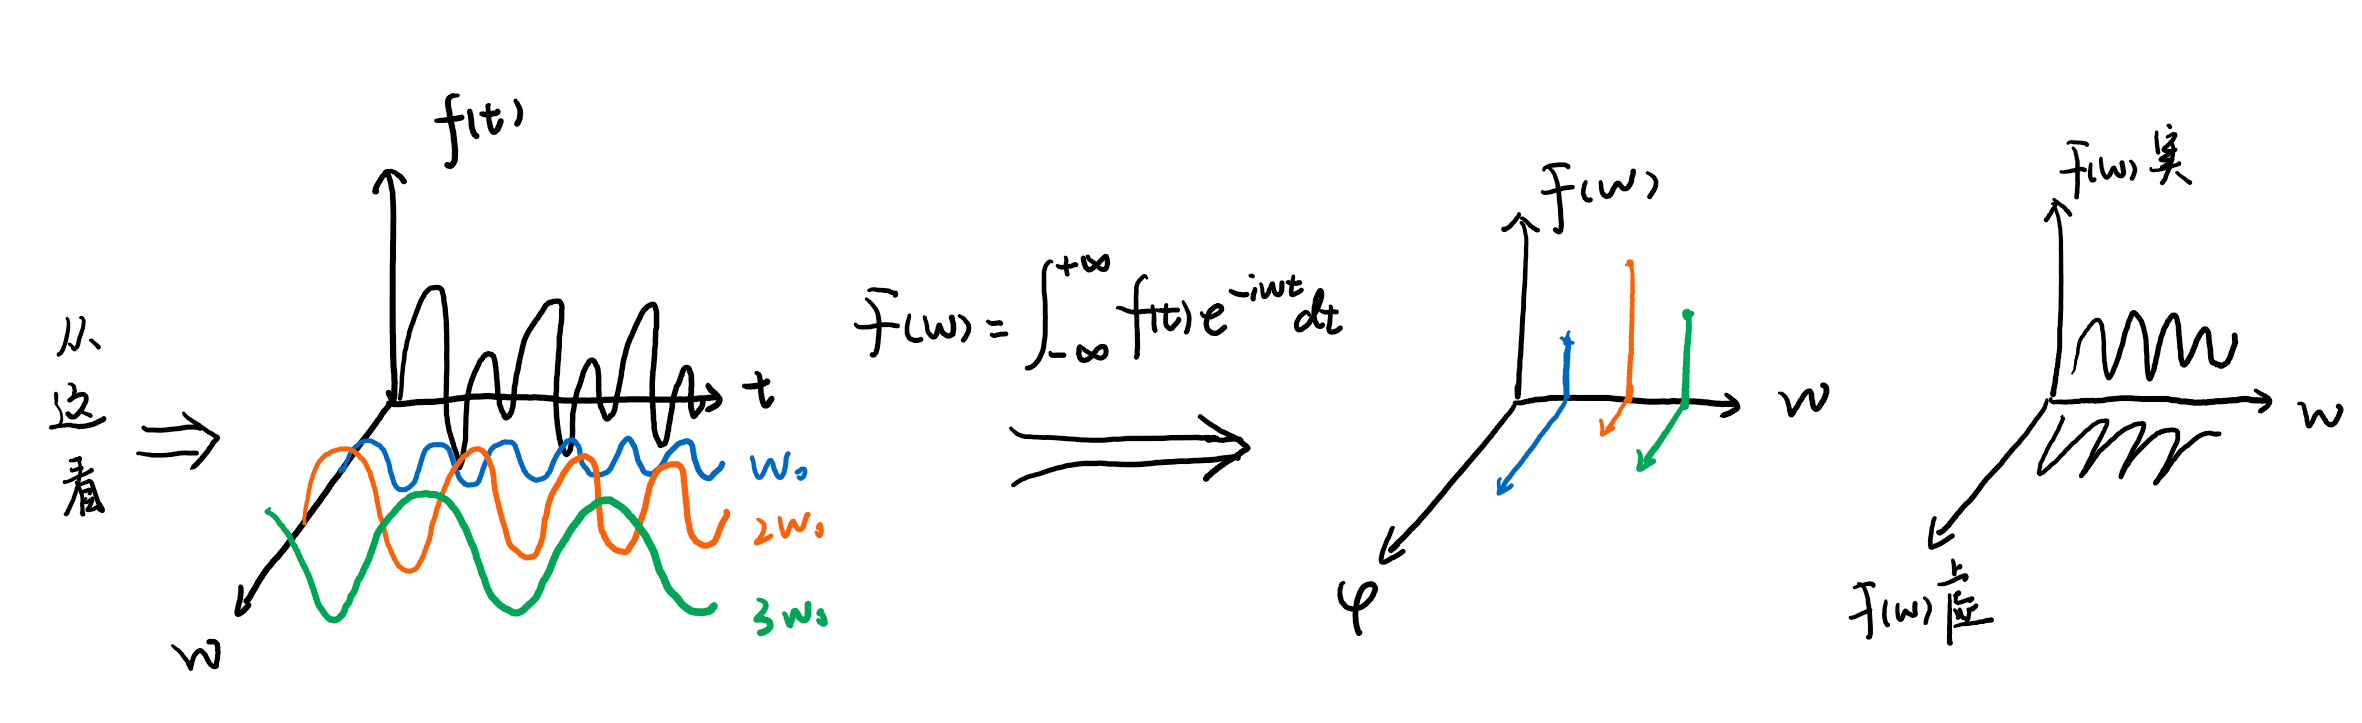 f(t)
从
这
看
t
w
w₀
2w₀
3w₀
F(w) = ∫_{-∞}^{+∞} f(t) e^{-iwt} dt
F(w)
w
φ
F(w)实
w
F(w)虚